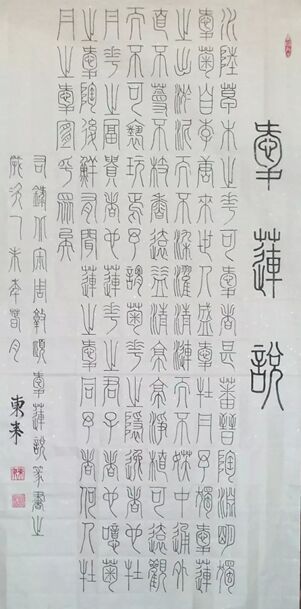 愛蓮說
水陸草木之花可愛者甚蕃晉陶淵明獨
愛菊自李唐來世人盛愛牡丹予獨愛蓮
之出淤泥而不染濯清漣而不妖中通外
直不蔓不枝香遠益清亭亭淨植可遠觀
而不可褻玩焉予謂菊花之隱逸者也牡
丹花之富貴者也蓮花之君子者也噫菊
之愛陶後鮮有聞蓮之愛同予者何人牡
丹之愛宜乎眾矣
右錄北宋周敦頤愛蓮說篆書之
歲次乙未年春月
東來